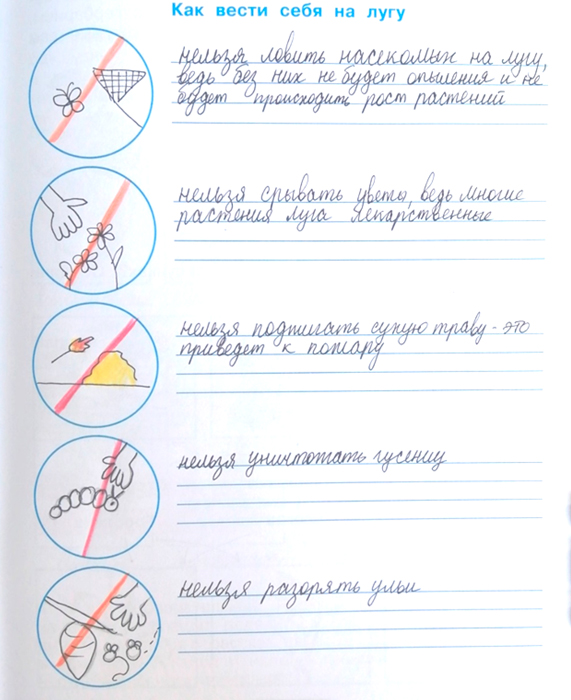 Как вести себя на лугу
нельзя ловить насекомых на лугу,
ведь без них не будет опыления и не
будет происходить рост растений
нельзя срывать цветы, ведь многие
растения луга лекарственные
нельзя поджигать сухую траву - это
приведет к пожару
нельзя уничтожать гусениц
нельзя разорять ульи